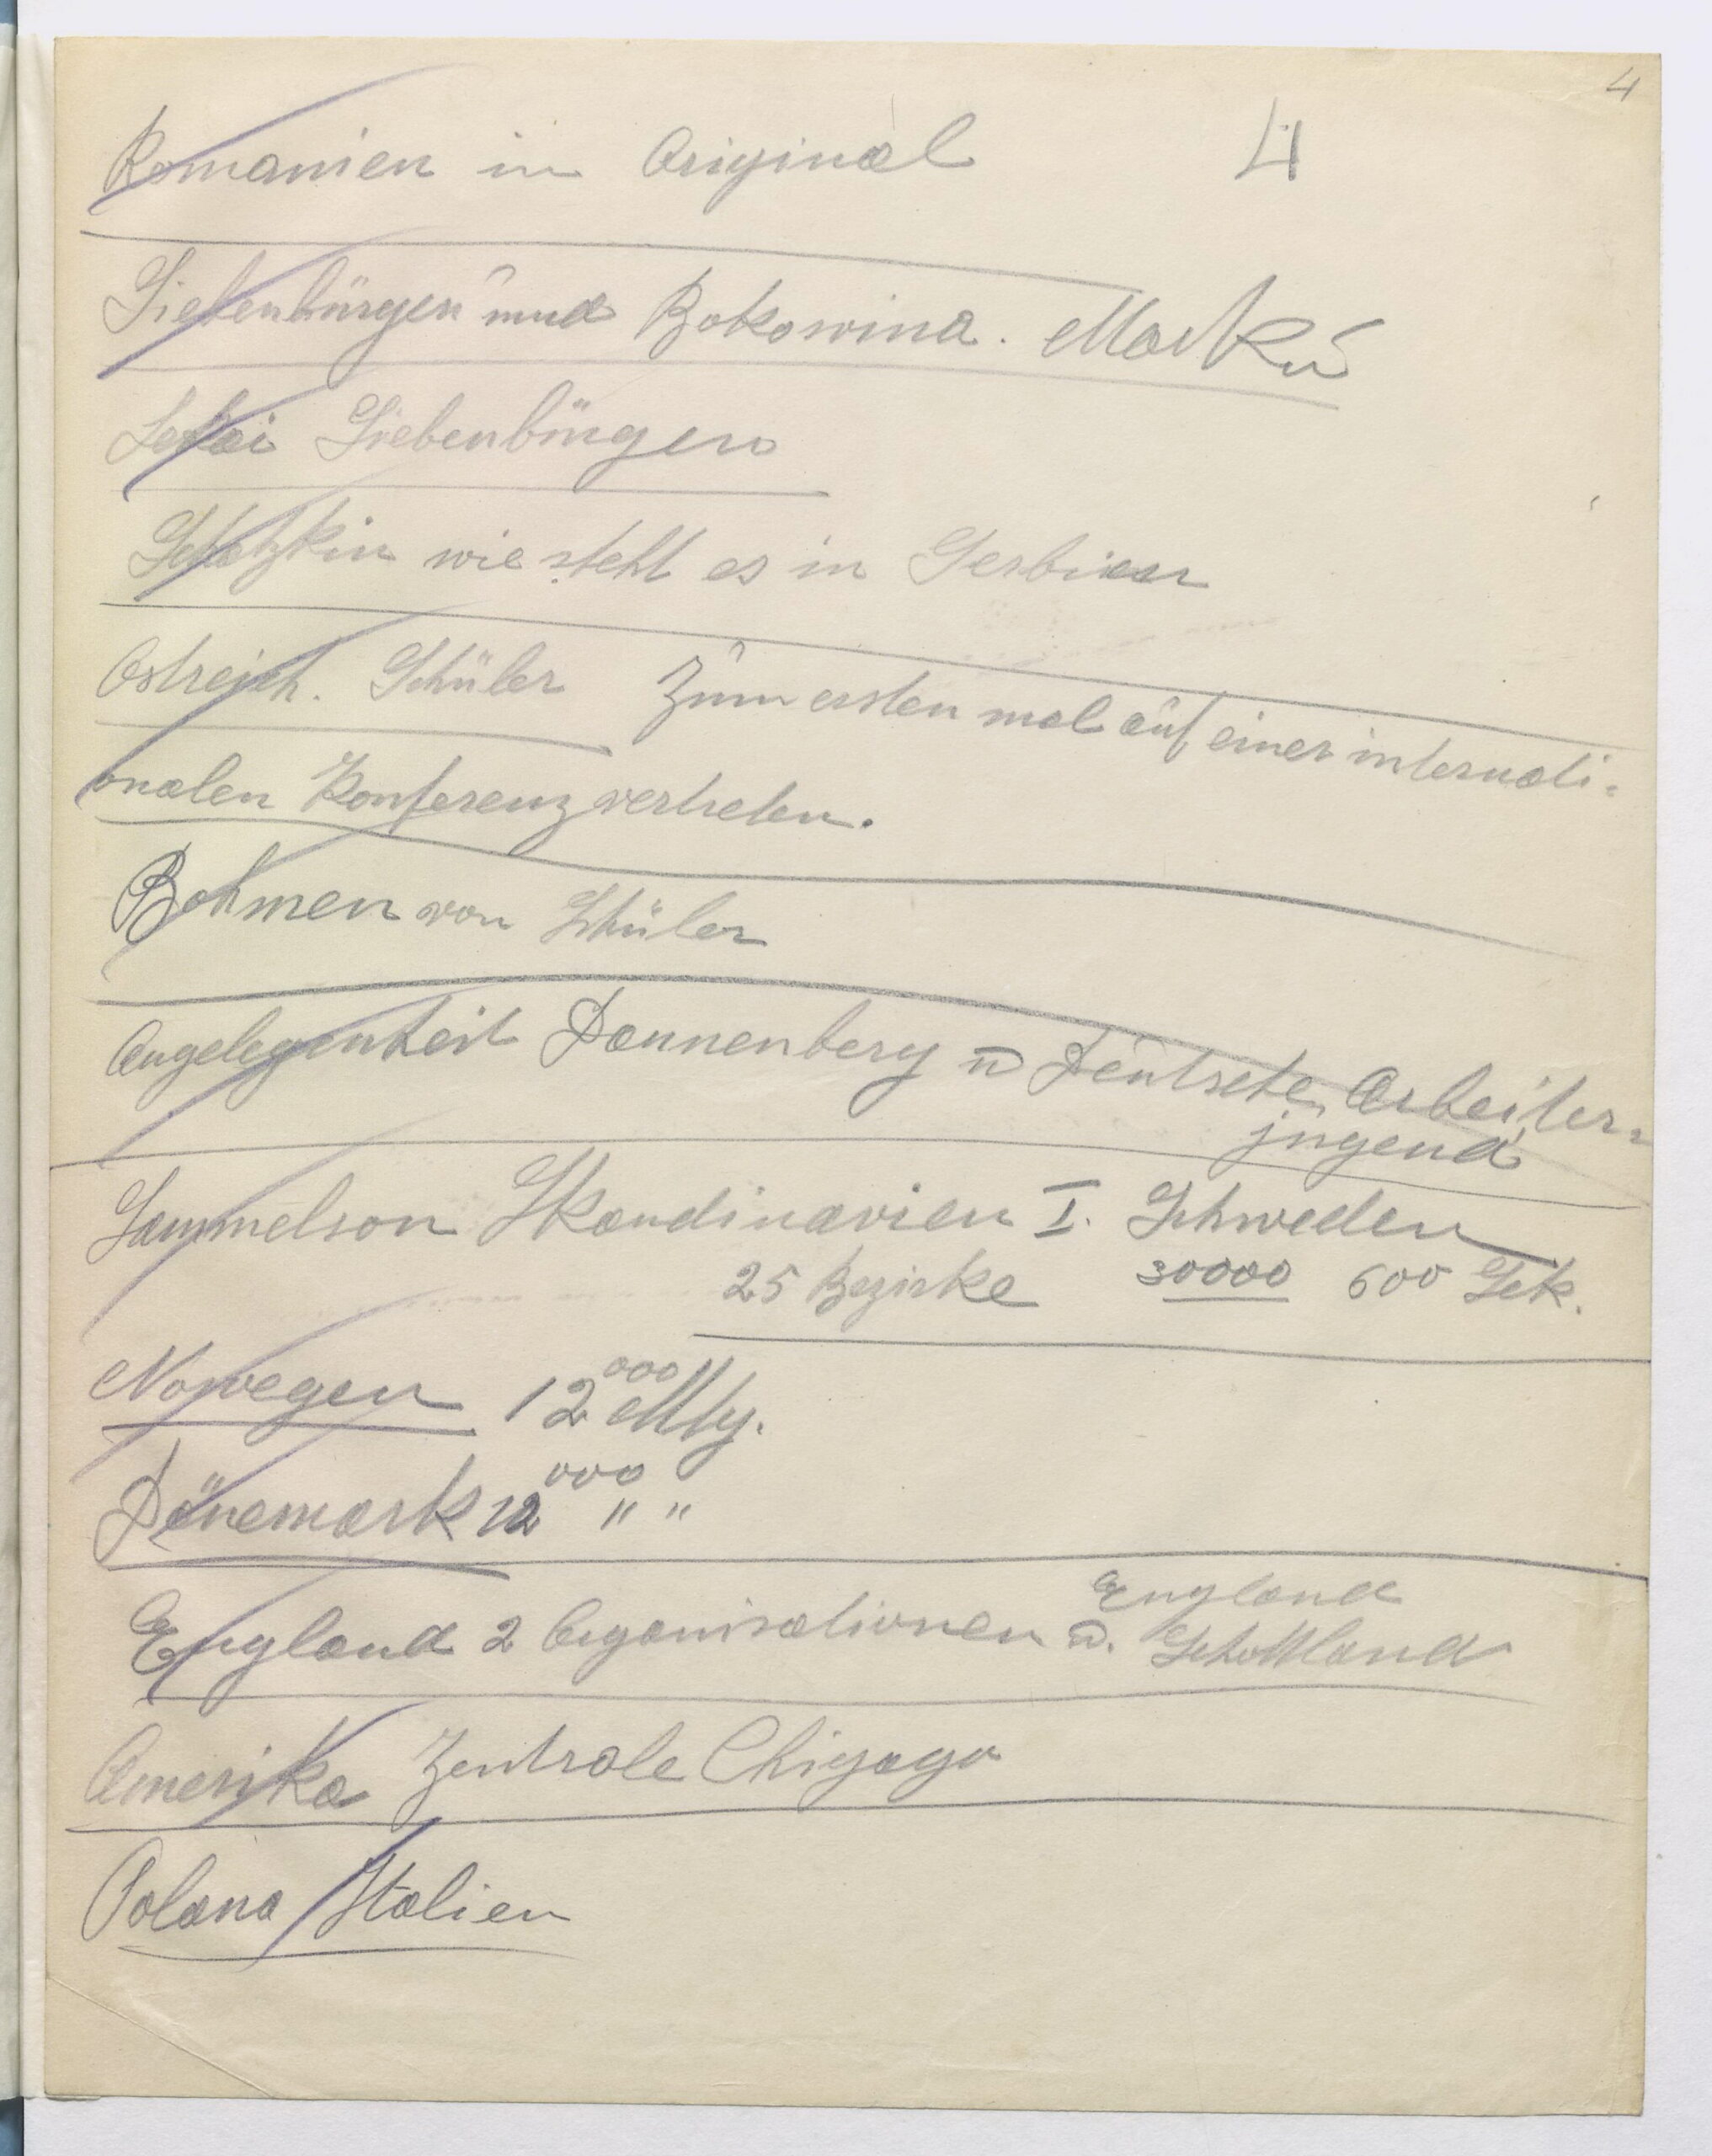 4
Romanien in Original 4
Siebenbürgen und Bokowina. Markú
Siebenbürgen
Schatzkin wie steht es in Serbien
Ostreich. Schüler Zum ersten mal auf einer internati-
onalen Konferenz vertreten.
Bohmen von Schüler
Angelegenheit Dannenberg u Deutsche Arbeiter-
jugend
Sammelson Skandinavien I. Schweden
25 Bezirke 30000 600 Sek.
Nowegen 12000 Mtg.
Dänemark 12000 " "
England 2 Organisationen u. England
Schottland
Amerika Zentrale Chigago
Polano Italien